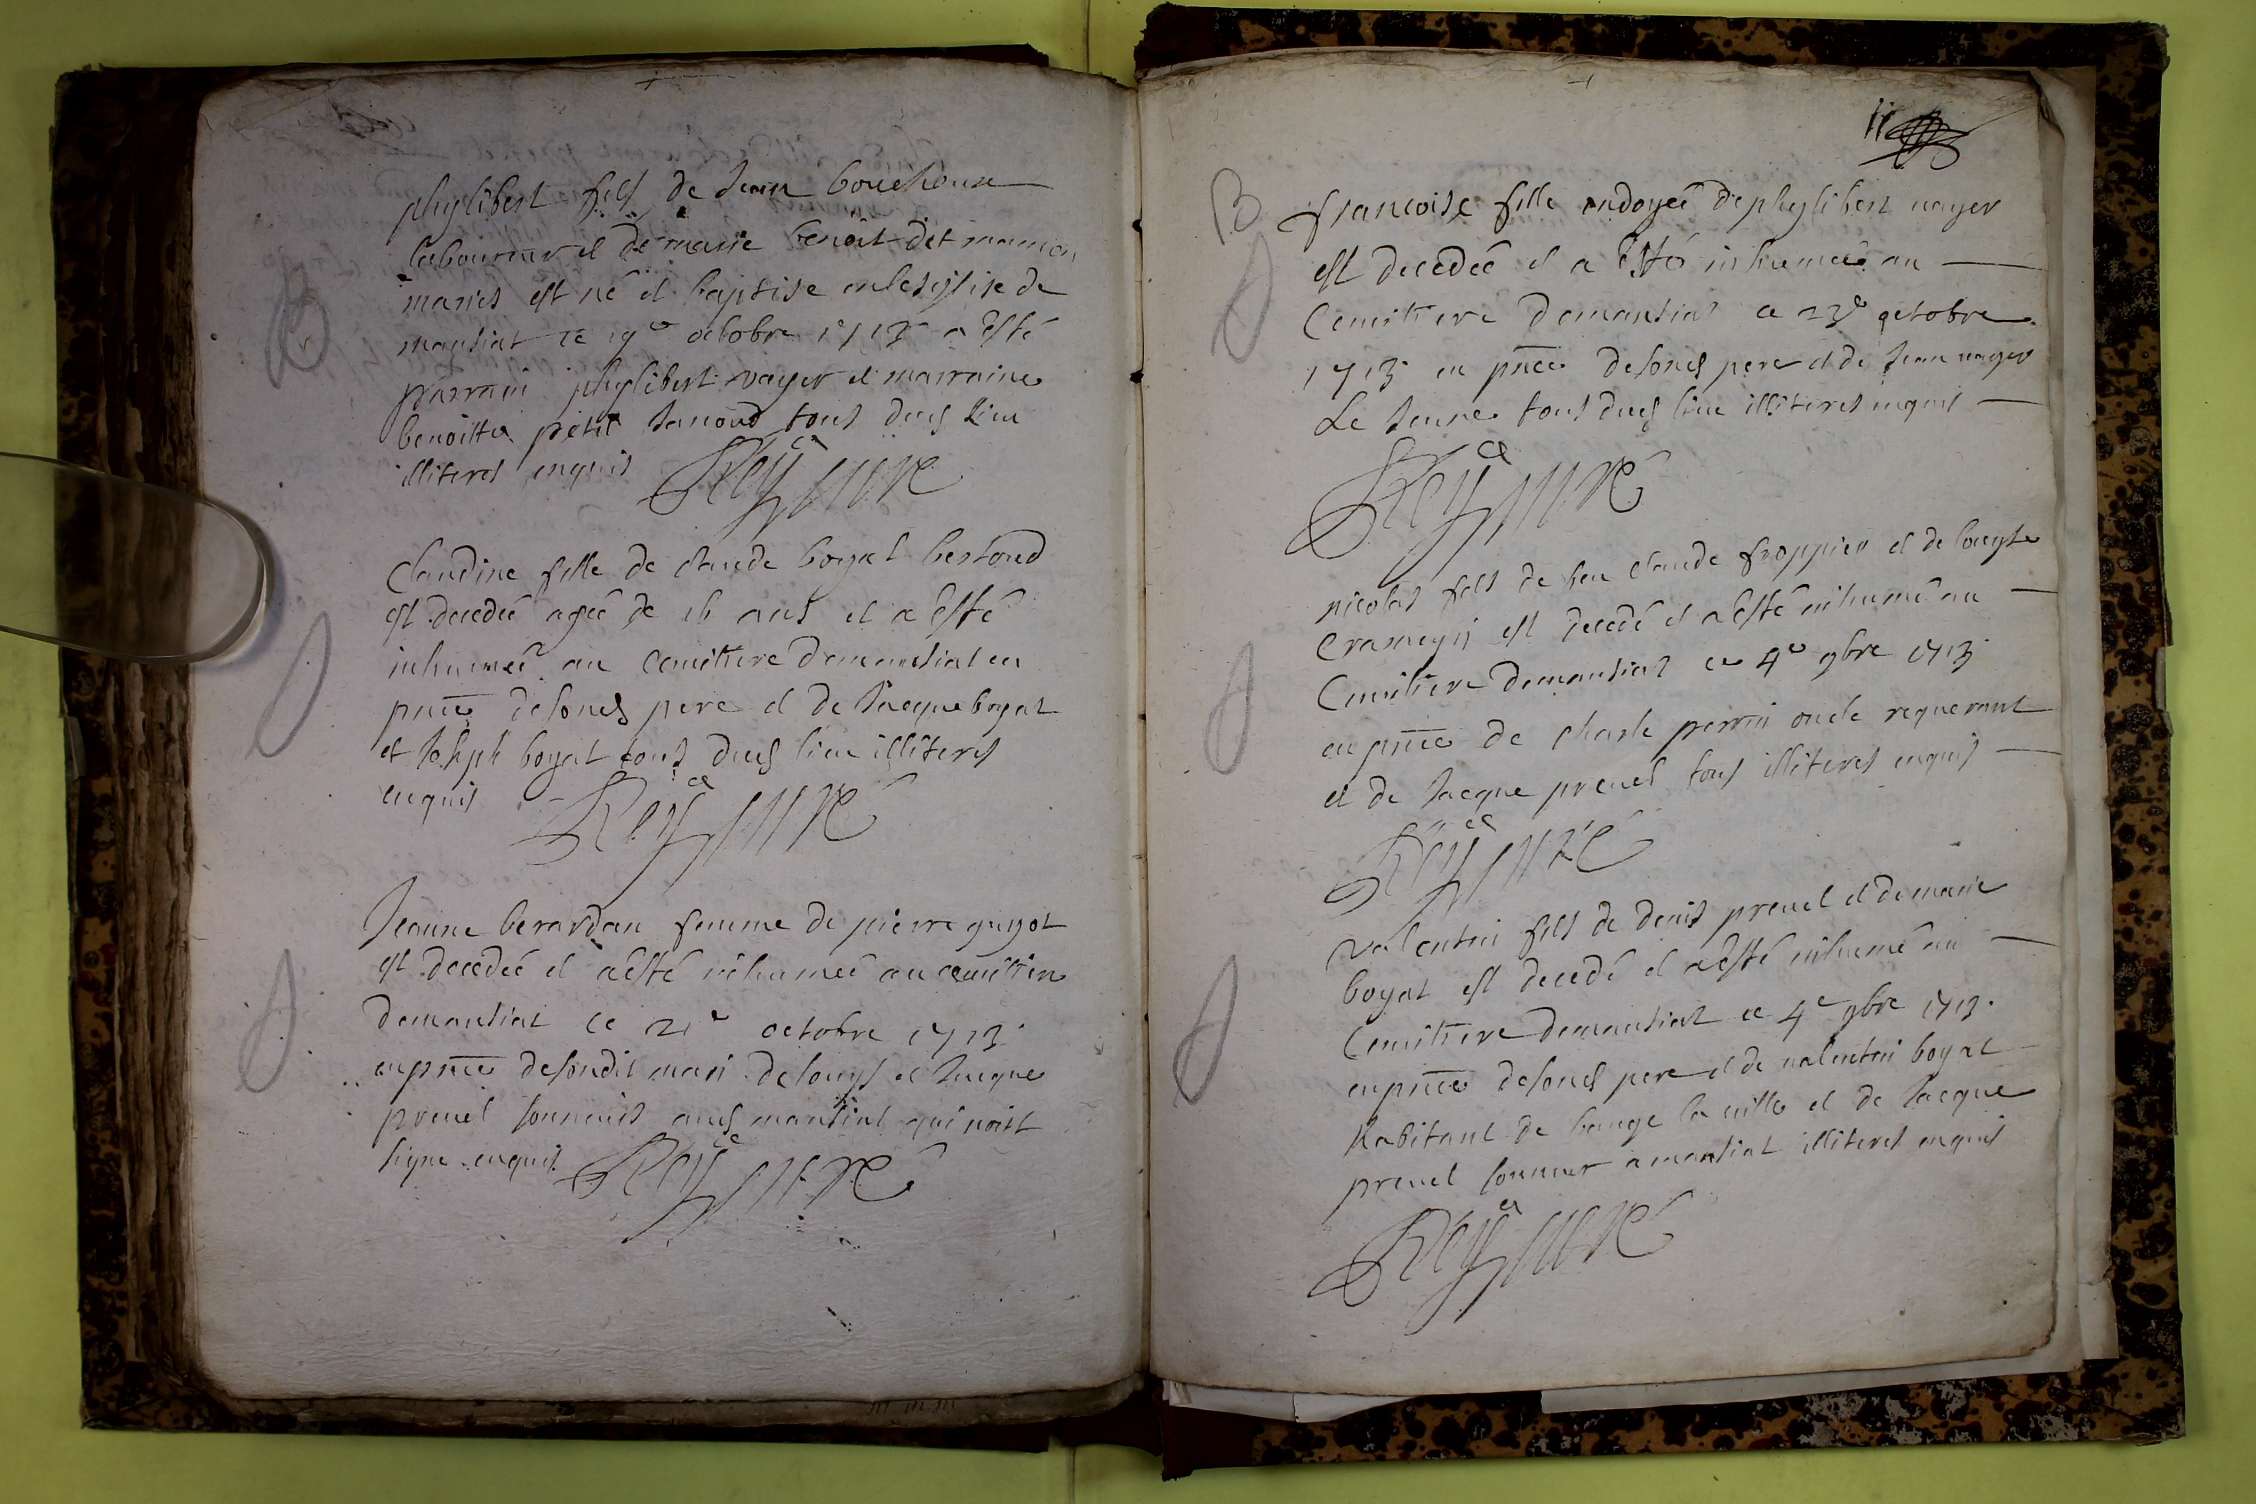 phylibert fils de Jean bouchoux
laboureur et de marie benoit dit mamon
mariés est né et baptise en lesglise de
mantiat ce 19e octobre 1713 a esté
parrain phylibert vayer et marraine
benoitte petit Janoud tous dud lieu
illiteres enquis Rey curé
Claudine fille de claude boyat bertoud
est decedeé ageé de 16 ans et a esté
inhumeé au cemitiere demantiat en
pnce desond pere et de Jacque boyat
et Joseph boyat tous dud lieu illiteres
enquis Rey curé
Jeanne berardan femme de pierre guyot
est decedeé et a esté inhumeé au cemitiere
demantiat ce 21e octobre 1713
en pnce desondit mari de louys et Jacque
prevel sonneurs aud mantiat qui nont
signe enquis Rey curé
11
B
francoise fille ondoyeé de phylibert vayer
est decedeé et a esté inhumeé au
Cemitiere demantiat ce 23e octobre
1713 en pnce desond pere et de Jean vayer
Le Jeune tous dud lieu illiteres enquis
Rey curé
nicolas fils de feu claude froppier et de louyse
est decedé et a esté inhumé au
Cemitiere demantiat ce 4e 9bre 1713
en pnce de charle perrin oncle requerant
et de Jacque prevel tous illiteres enquis
Rey curé
Valentin fils de denis prevel et de marie
boyat est decedé et a esté inhumé au
Cemitiere demantiat ce 4e 9bre 1713.
en pnce desond pere et de valentin boyat
habitant de bauge la ville et de Jacque
prevel sonneur a mantiat illiteres enquis
Rey curé